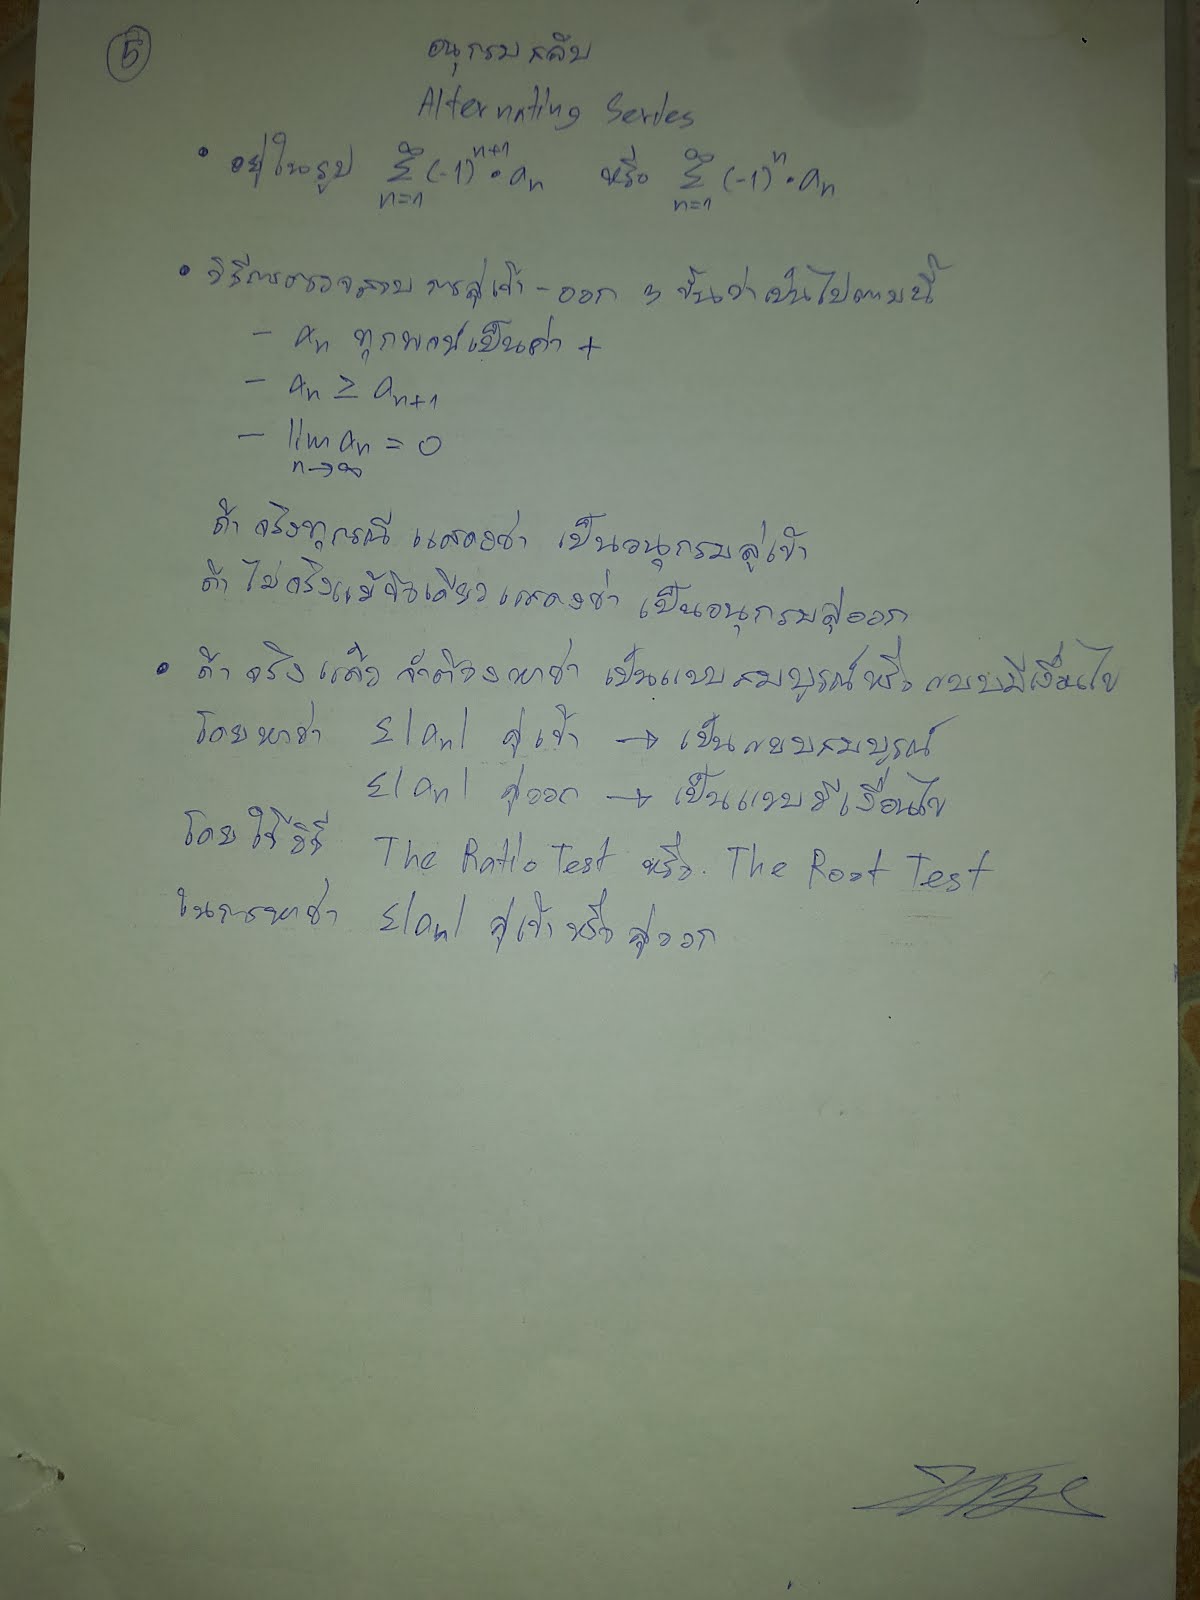 5
อนุกรมสลับ
Alternating Series
• อยู่ในรูป ∑_{n=1}^{∞} (-1)^{n+1} • a_n หรือ ∑_{n=1}^{∞} (-1)^n • a_n
• วิธีการตรวจสอบ การลู่เข้า - ออก 3 ขั้นว่าเป็นไปตามนี้
- a_n ทุกพจน์เป็นค่า +
- a_n ≥ a_{n+1}
- lim_{n→∞} a_n = 0
ถ้า จริงทุกรณี แสดงว่า เป็นอนุกรมลู่เข้า
ถ้า ไม่จริงแม้ข้อเดียว แสดงว่า เป็นอนุกรมลู่ออก
• ถ้า จริง แล้ว จำต้องหาว่า เป็นแบบสมบูรณ์หรือ แบบมีเงื่อนไข
โดยหาว่า Σ|a_n| ลู่เข้า → เป็นแบบสมบูรณ์
Σ|a_n| ลู่ออก → เป็นแบบมีเงื่อนไข
โดยใช้วิธี The Ratio Test หรือ The Root Test
ในการหาว่า Σ|a_n| ลู่เข้าหรือ ลู่ออก